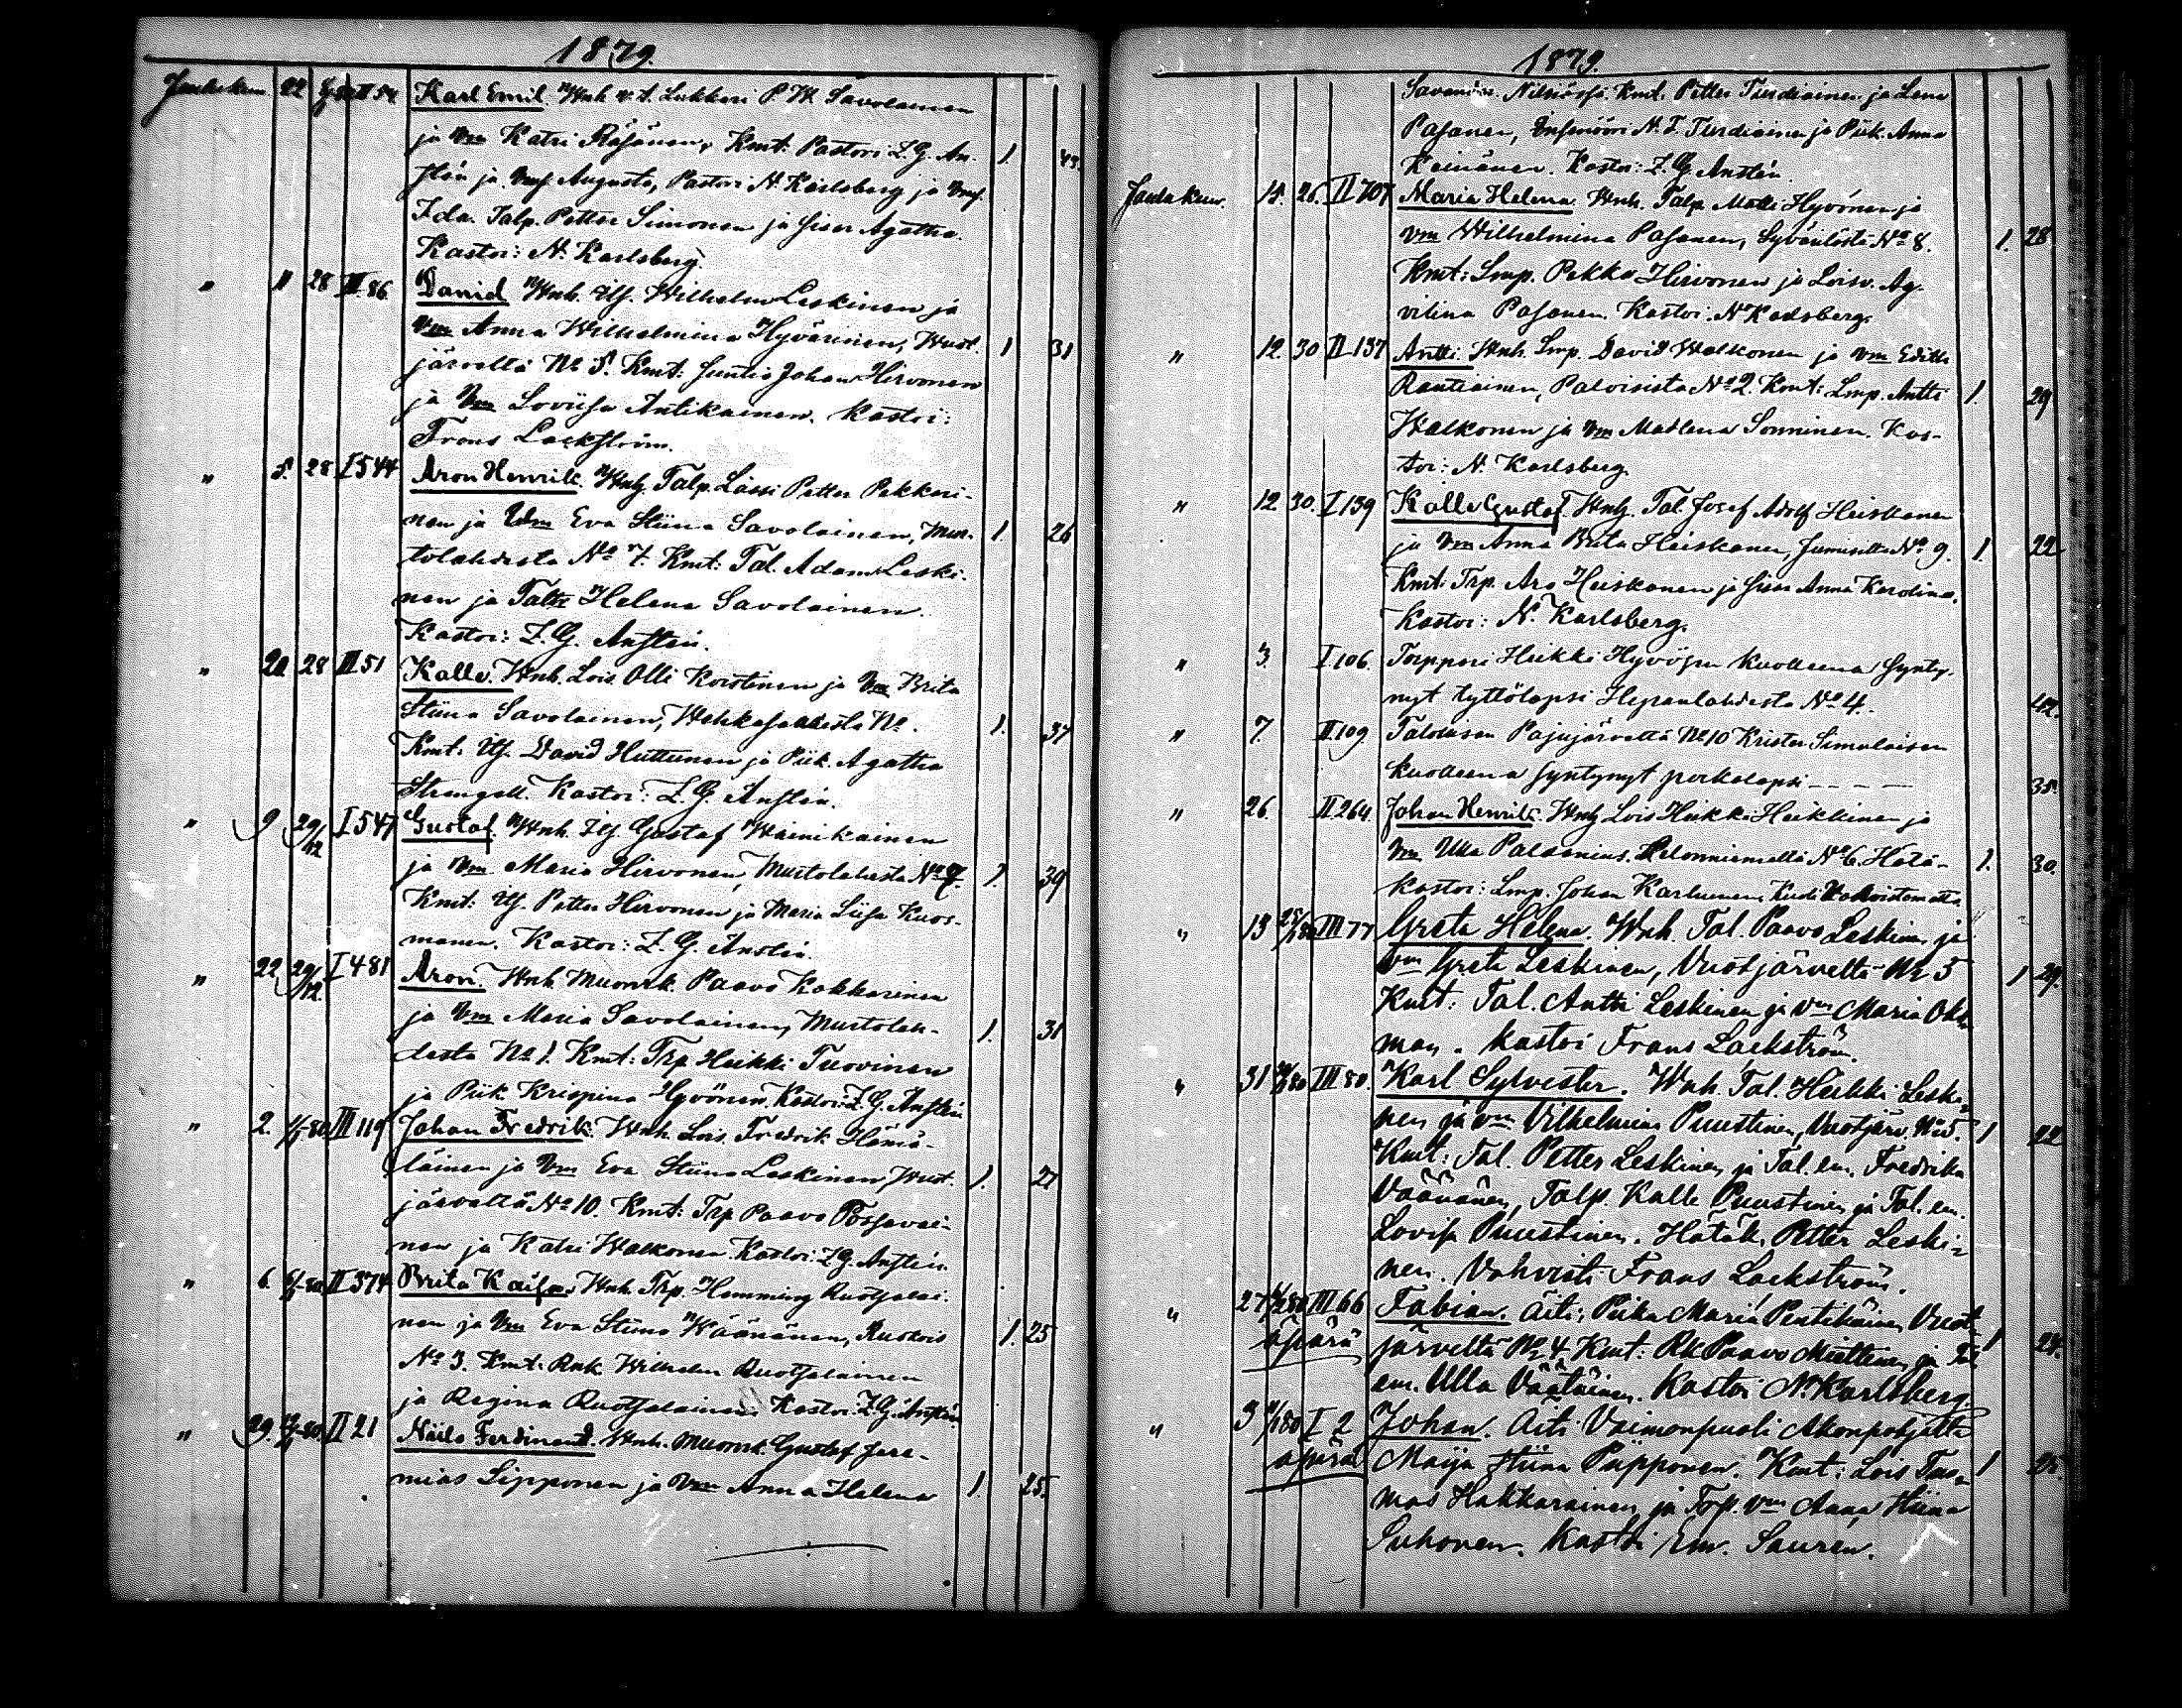 1879.
Joulukuu. 22 II 54 Karl Emil. Wnh. v.t. Lukkari P. W. Savolainen
ja Vm Katri Räsänen, Kmt: Pastori Z. G. An- 1. 43.
stén ja Vmf Augusta, Pastori N. Karlsberg ja Vmf.
Ida. Talp. Petter Simonen ja sisar Agatha.
Kastoi: N. Karlsberg.
" 11 28 III 86 David Wnh. Itf. Wilhelm Leskinen ja
Vm Anna Wilhelmina Hyvärinen, Wuot- 1 31
järveltä No 5. Kmt: Suntio Johan Hirvonen
ja Vm Loviisa Antikainen. Kastoi:
Frans Lackström.
" 5. 28 I 544 Aron Henrik. Wnh. Talp. Lassi Petter Pekkari-
nen ja Vm Eva Stiina Savolainen, Mus- 1. 26
tolahdesta No 7. Kmt: Tal. Adam Leski-
nen ja Helena Savolainen.
Kastoi: Z. G. Anstén.
" 20 28 III 51 Kalle. Wnh. Lois. Olli Korotinen ja Vm Brita
Stiina Savolainen, No. 1. 37
Kmt. Itf. David Huttunen ja Piik. Agatha
Strengell. Kastoi: Z. G. Anstén.
" 9 29/12 I 547 Gustaf. Wnh. Itf. Gustaf Wäinikainen
ja Vm Maria Hirvonen, Mustolahesta No 7. 1. 39
Kmt: Itf. Petter Hirvonen ja Maria Liisa Kuos-
manen. Kastoi: Z. G. Anstén.
" 22 29/12. I 481 Aron. Wnh. Muonrk. Paavo Kakkarinen
ja Vm Maria Savolainen, Mustolah- 1. 31
desta No 1. Kmt: Trp Heikki Tuovinen
ja Piik. Krispina Hyvönen. Kastoi: Z. G. Anstén
" 2. 1/1-80 III 119 Johan Fredrik. Wnh. Lois. Fredrik Hämä-
läinen ja Vm Eva Stiina Leskinen, Wuot- 1. 27
järveltä No 10. Kmt: Trp Paavo
nen ja Katri Walkonen. Kastoi: Z. G. Anstén.
" 6. 6/1-80 II 374 Brita Kaisa. Wnh. Trp. Hemming Ruotsalai-
nen ja Vm Eva Stiina Wäänänen, 1. 25
No 3. Kmt: Rnk Wilhelm Ruotsalainen
ja Regina Ruotsalainen. Kastoi: Z. G. Anstén
" 29. II 21 Niilo Ferdinand. Wnh. Muonrk. Gustaf Jere-
mias Lipponen ja Vm Anna Helena 1. 25.
1879.
Nilsiässä. Kmt: Petter Turdiainen ja Lena
Pasanen, Insinööri N. F. Turdiainen ja Piik. Anna
Keinänen. Kastoi: Z. G. Anstén.
Joulukuu. 15. 26. II 707 Maria Helena. Wnh. Talp. Matti Hyvönen ja
Vm Wilhelmina Pasanen, Syväriltä No 8. 1. 28
Kmt: Lmp. Pekka Hirvonen ja Loisv. Ag-
vilina Pasanen. Kastoi: N Karlsberg.
" 12. 30 II 137 Antti. Wnh. Lmp. David Walkonen ja Vm Edith
Rautiainen, Paloisista No 2. Kmt: Lmp. Antti 1. 29
Walkonen ja Vm Madlena Sonninen. Kas-
toi: N. Karlsberg.
" 12 30. I 139 Kalle Gustaf. Wnh. Tal. Josef Adolf Heiskanen
ja Vm Anna Brita Heiskanen, No 9. 1. 22
Kmt: Trp. Aro Heiskanen ja sisar Anna Karolina.
Kastoi: N. Karlsberg.
" 3. I 106. Torppari Heikki Hyvösen kuolleena synty-
nyt tyttölapsi No 4. 42.
" 7. II 109. Talokkaan Pajujärveltä No 10 Krister Simolaisen
kuolleena syntynyt poikalapsi - - - - 35.
" 26 II 264. Johan Henrik. Wnh Lois Heikki Heikkinen ja
Vm Ulla No 6. Hätä- 1. 30.
kastoi: Lmp. Johan Karhunen
" 13 III 77 Greta Helena. Wnh. Tal. Paavo Leskinen ja
Vm Greta Leskinen, Vuotjärveltä No 5 1 29.
Kmt: Tal. Antti Leskinen ja Vm Maria Oks-
man. Kastoi Frans Lackström.
" 31 III 80. Karl Sylvester. Wnh. Tal. Heikki Leski-
nen ja Vm Vilhelmina Puustinen, Vuotjärv. No 5. 1 22
Kmt: Tal. Petter Leskinen ja Tal. em. Fredrika
Väänänen, Talp. Kalle Puustinen ja Tal. em.
Lovisa Puustinen. Hätäk. Petter Leski-
nen. Vahvisti Frans Lackström.
" 27 III 66 Fabian. Äiti: Piika Maria Pentikäinen Vuot-
äpärä järveltä No 4 Kmt: Rk Paavo Miettinen ja Tal. 1 24.
em. Ulla Väätäinen. Kastoi N. Karlsberg.
" 3 I 2 Johan. Äiti Vaimonpuoli Akonpohjalta
äpärä Maija Stiina Piipponen. Kmt: Lois Tuo- 1 25.
mas Hakkarainen ja Torp. vm Anna Stiina
Suhonen. Kastoi Em. Saurén.